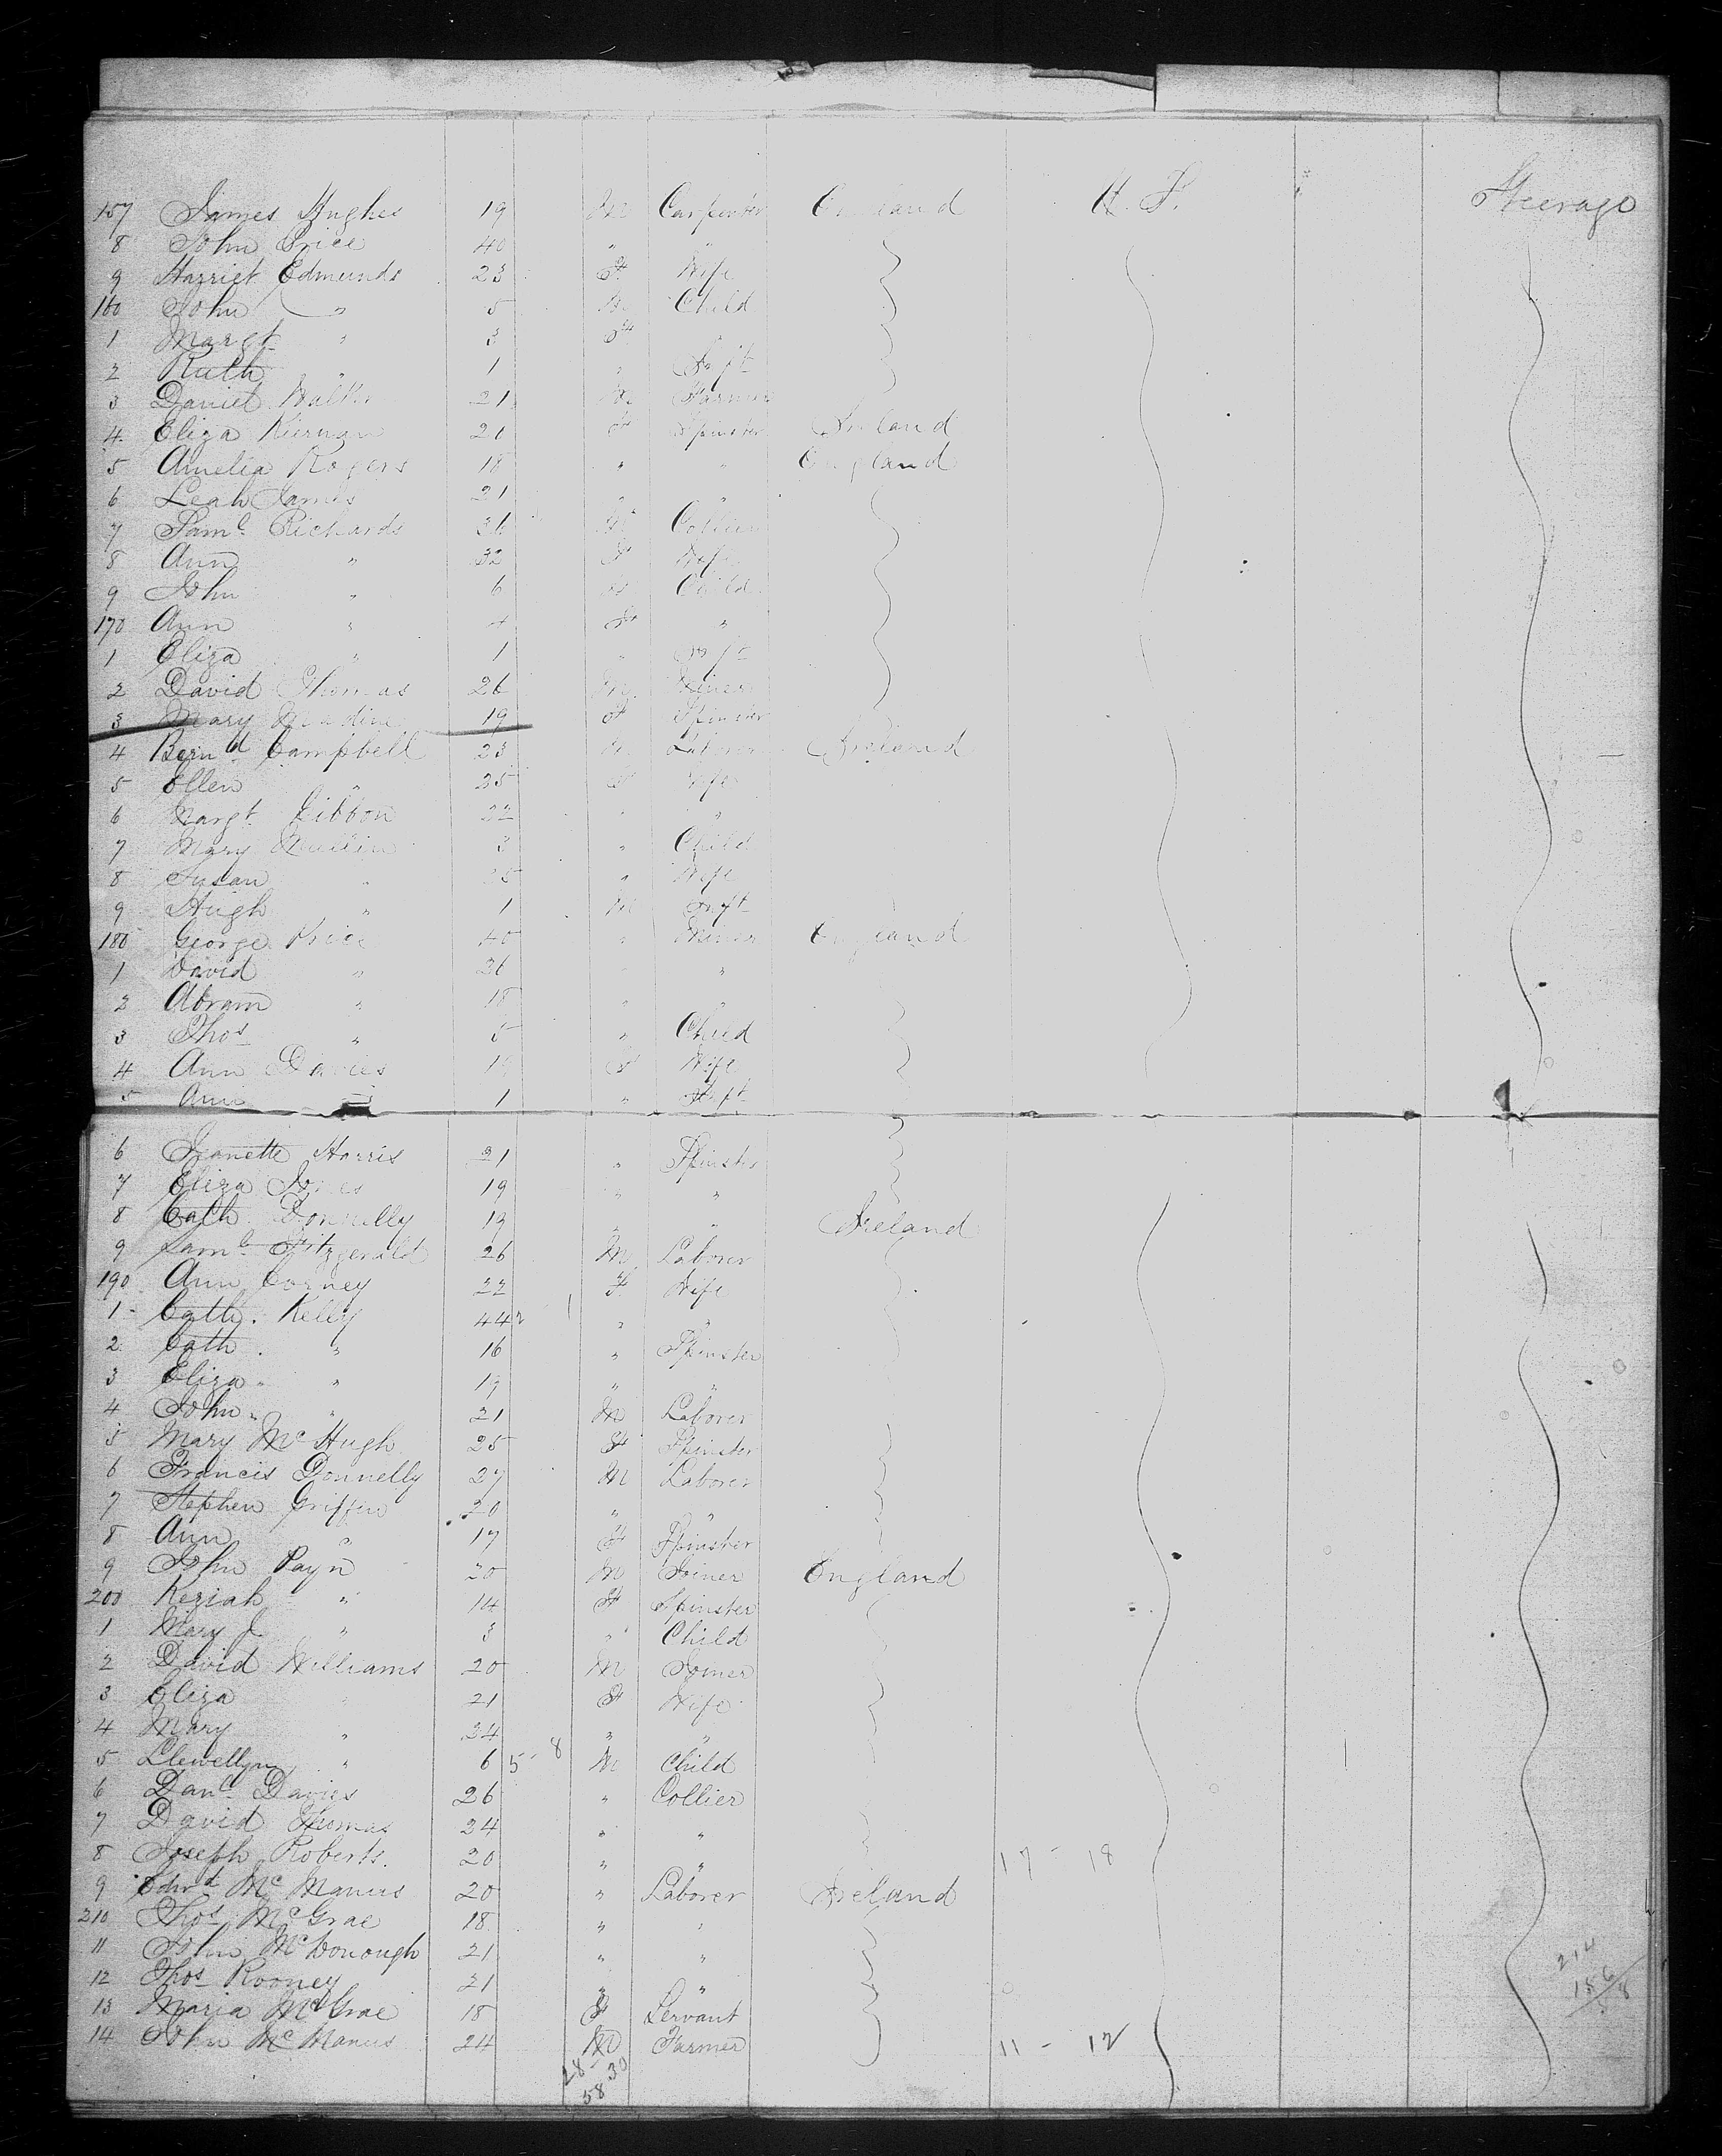 157 James Hughes 19 M Carpenter England U. S. Steerage
8 John Price 40 " "
9 Harriet Edmunds 23 F Wife
160 John " 5 M Child
1 Margt " 3 F
2 Ruth " 1 " Inft
3 Daniel 21 M Farmer
4 Eliza Kiernan 21 F Spinster Ireland
5 Amelia Rogers 18 " " England
6 Leah James 21 " "
7 Saml Richards 36 M Collier
8 Ann " 32 F Wife
9 John " 6 M Child
170 Ann " 4 F "
1 Eliza " 1 " Inft
2 David Thomas 26 M. Joiner
3 Mary 19 F Spinster
4 Bernd Campbell 23 M Laborer Ireland
5 Ellen " 25 F Wife
6 Margt Gibbon 22 " "
7 Mary Mullin 3 " Child
8 Susan " 25 " Wife
9 Hugh " 1 M Inft
180 George Price 40 " Miner England
1 David " 26 " "
2 Abram " 18 " "
3 Thos " 5 " Child
4 Ann Davies F Wife
5 Ann " 1 " Inft
6 Jeanette Harris 21 " Spinster
7 Eliza Jones 19 " "
8 Cath. Donnelly 19 " " Ireland
9 Saml Fitzgerald 26 M Laborer
190 Ann Corney 22 F Wife
1 Cath. Kelly 44 " "
2 Cath. " 16 " Spinster
3 Eliza " 19 " "
4 John " 21 M Laborer
5 Mary McHugh 25 F Spinster
6 Francis Donnelly 27 M Laborer
7 Stephen Griffin 20 " "
8 Ann " 17 F Spinster
9 John Payn 20 M Joiner England
200 Keziah " 14 F Spinster
1 Mary J. " 3 " Child
2 David Williams 20 M Joiner
3 Eliza " 21 F Wife
4 Mary " 24 " "
5 Llewellyn " 6 5-8 M Child
6 Danl Davies 26 " Collier
7 David Thomas 24 " "
8 Joseph Roberts. 20 " " 17 - 18
9 Edwd McManus 20 " Laborer Ireland
210 Thos McGrae 18 " "
11 John McDonough 21 " "
12 Thos Rooney 21 " "
13 Maria McGrae 18 F Servant
14 John McManus 24 M Farmer 11 - 12
214
156
58
28 30
58